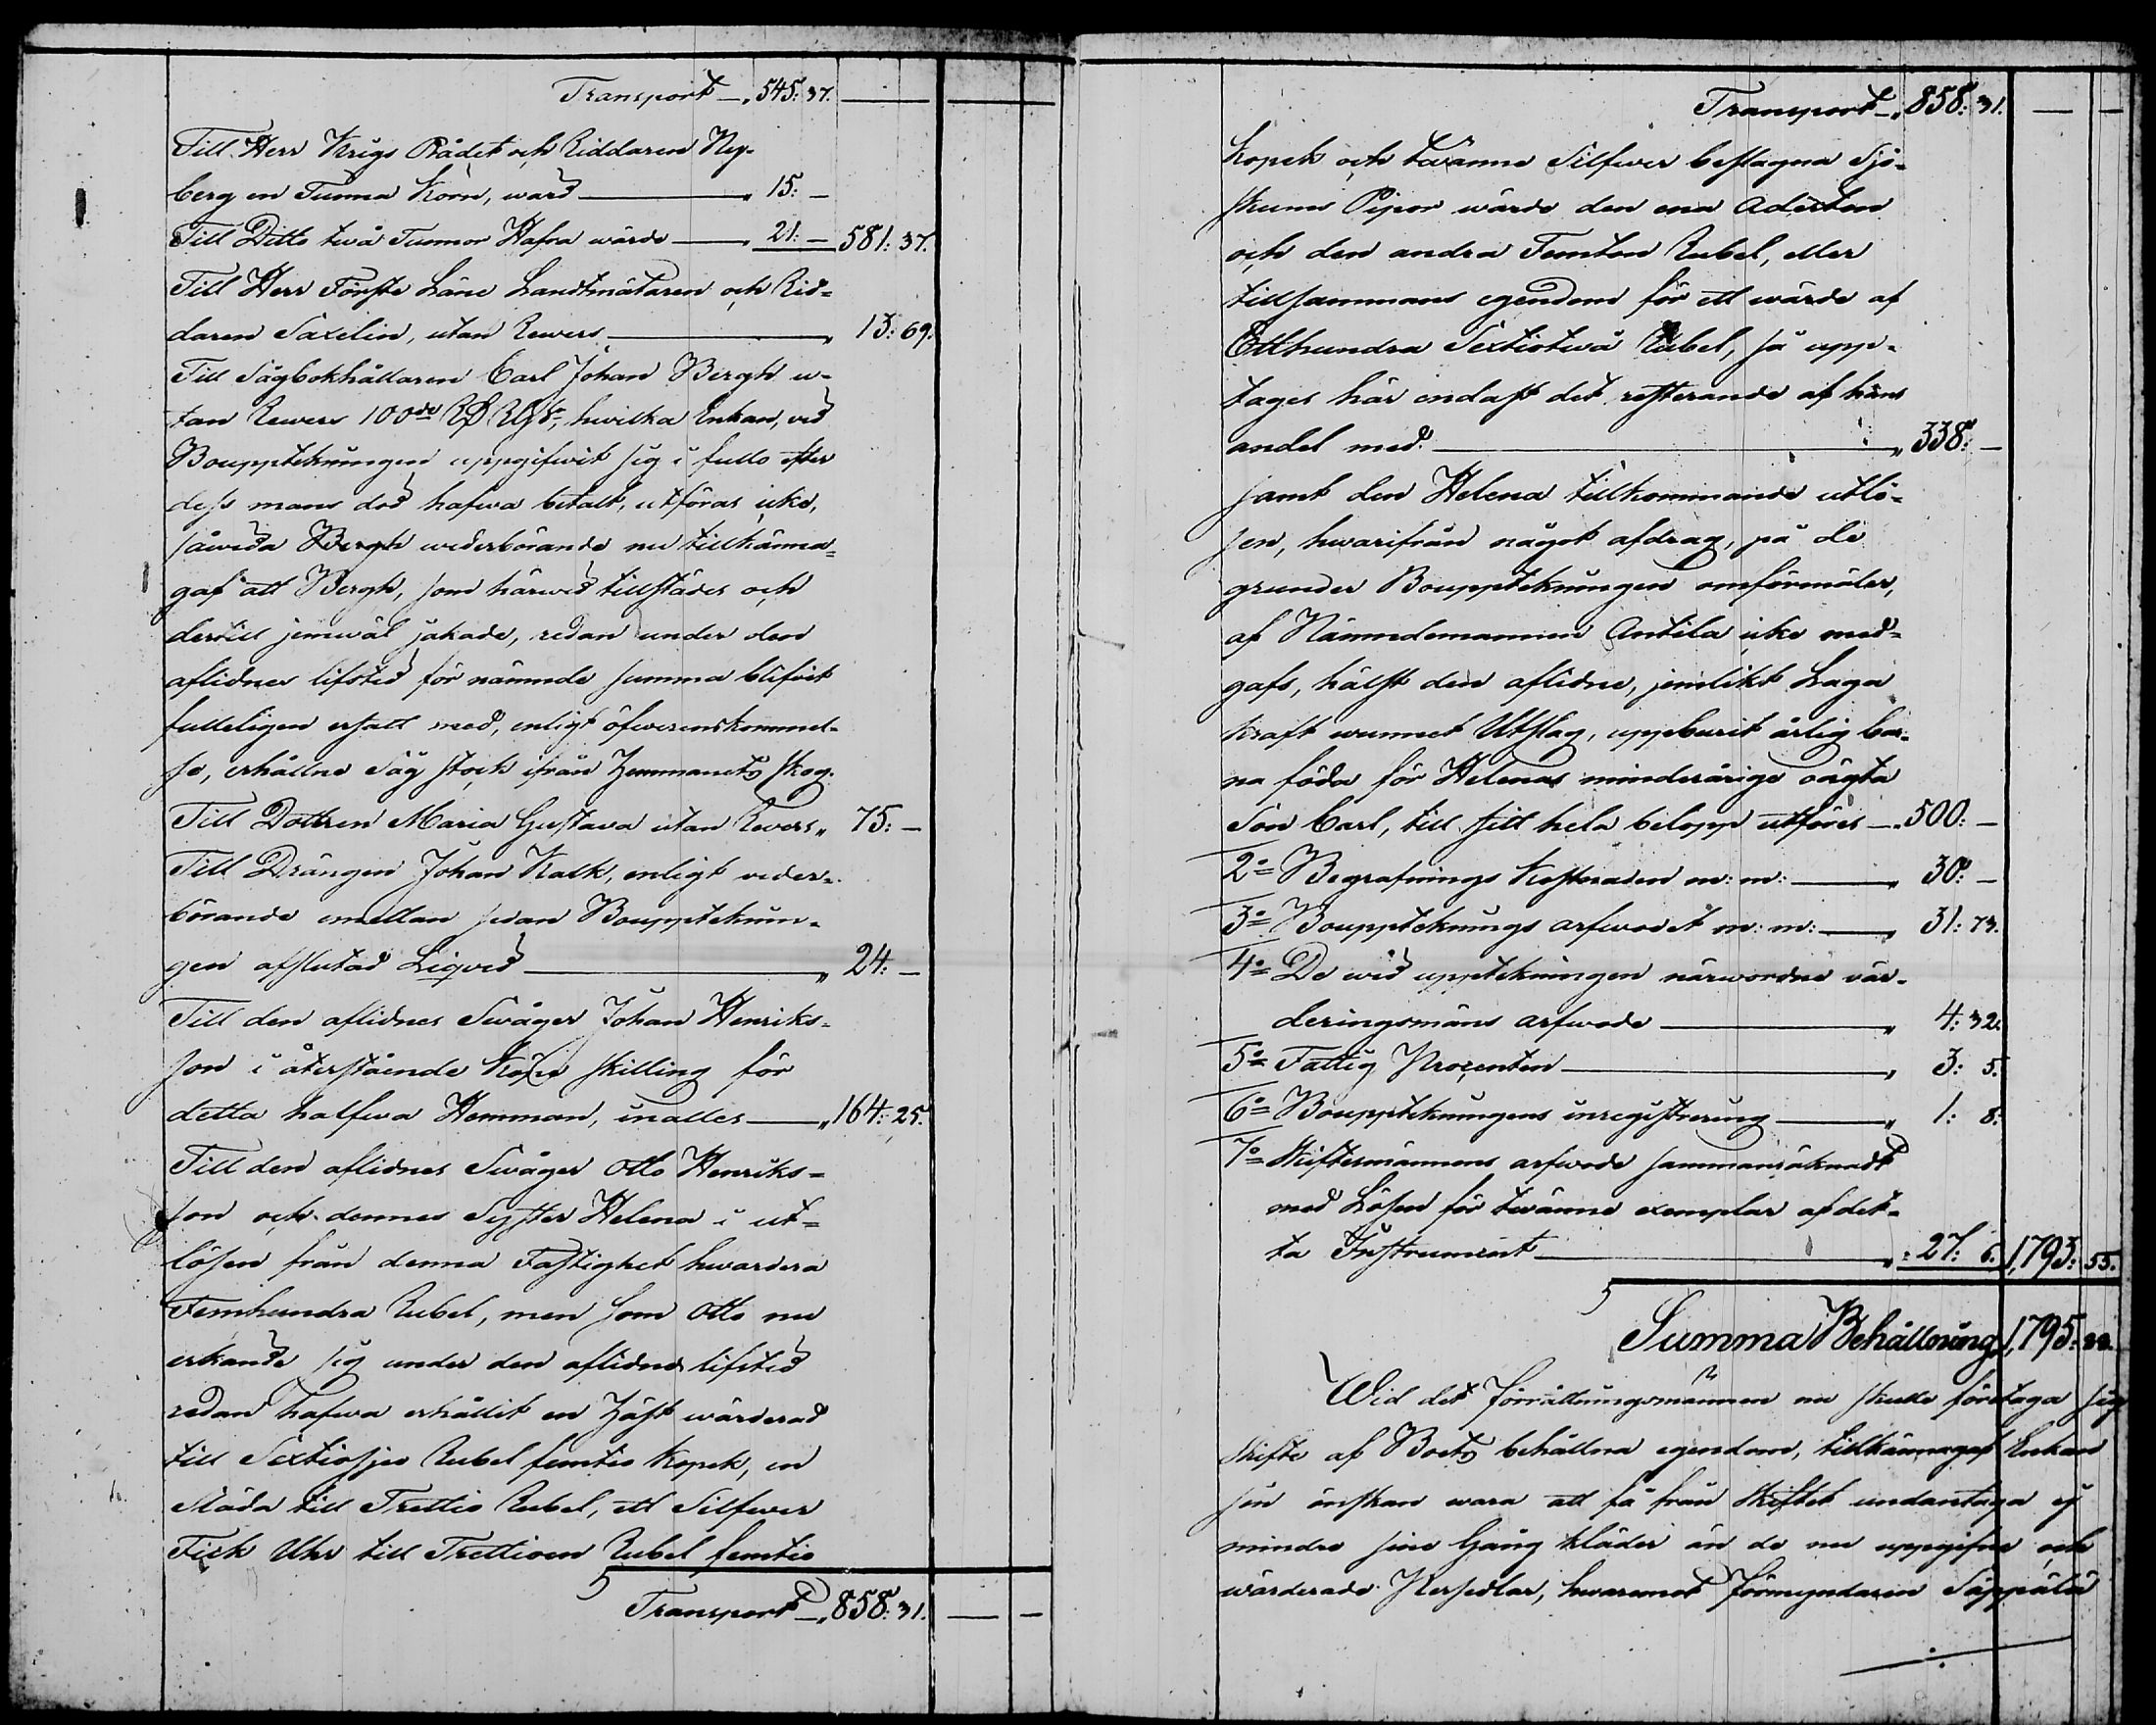 Transport — „ 545: 37. —
Till Herr Krigs Rådet och Riddaren Ny-
berg en Tunna Korn, ward — „ 15: —
Till Ditto två Tunnor Hafra wärde — „ 21: — 581: 37.
Till Herr Förste Läne Landtmätaren och Rid-
daren Saxelin, utan Revers — „ 13: 69.
Till Sågbokhållaren Carl Johan Bergh u-
tan Revers 100de hwilka Enkan, vid
Boupptekningen uppgifwit sig i fullo efter
dess mans död hafwa betalt, utföras icke,
såwida Bergh wederbörande nu tillkänna-
gaf att Bergh, som härwid tillstädes och
dertill jemwäl jakade, redan under den
aflidnes lifstid för nämnde summa blifvit
fulleligen ersatt med, enligt öfwerenskommel-
se, erhållne Såg stock ifrån Hemmanets skog.
Till Dottren Maria Gustava utan Revers „ 75: —
Till Drängen Johan Kalk, enligt veder-
börande emellan sedan Boupptekninn-
gen afslutad Liqvid — „ 24: —
Till den aflidnes Swåger Johan Henriks-
son i återstående Köpe skilling för
detta halfwa Hemman, inalles — „ 164: 25.
Till den aflidnes Swåger Otto Henriks-
son och dennes Syster Helena i ut-
lösen från denna Fastighet hwardera
Femhundra Rubel, men som Otto nu
erkände sig under den aflidnes lifstid
redan hafwa erhållit en Häst wärderad
till Sextiosju Rubel femtio Kopek, en
Släda till Trettio Rubel, ett Silfwer
Fick Uhr till Trettioen Rubel femtio
Transport — „ 858: 31. — —
Transport — „ 858: 31. — —
Kopek och twänne Silfwer beslagna Sjö-
skums Pipor wärde den ena Aderton
och den andra Femton Rubel, eller
tillsammans egendom för ett wärde af
Etthundra Sextiotwå Rubel, så upp-
tages här endast det resterande af hans
andel med — „ 338: —
samt den Helena tillkommande utlö-
sen, hwarifrån något afdrag, på de
grunder Boupptekningen omförmäler,
af Nämndemannen Antila icke med-
gafs, hälst den aflidne, jemlikt Laga
kraft wunnet Utslag, uppburit årlig bar-
na föda för Helenas minderårige oägta
Son Carl, till sitt hela belopp utföres — „ 500: —
2o Begrafnings Kostnaden m: m: — „ 30: —
3o Bouppteknings arfwodet m: m: — „ 31: 73.
4o De wid upptekningen närwordne vär-
deringsmäns arfwode — „ 4: 32.
5o Fattig Procenten — „ 3: 5.
6o Boupptekningens inregistrering — „ 1: 8.
7o Skiftesmännens arfwode sammanräknadt
med Lösen för twänne exemplar af det-
ta Instrument — „ 27: 6. 1,793: 55.
Summa Behållning 1,795:
Wid det Förrättningsmännen nu skulle företaga sig
skifte af Boets behållna egendom, tillkännagaf Enkan
sin önskan wara att få från skiftet undantaga ej
mindre sine Gång kläder än de nu uppgifne och
wärderade Persedlar, hwaremot Förmyndaren Säppälä